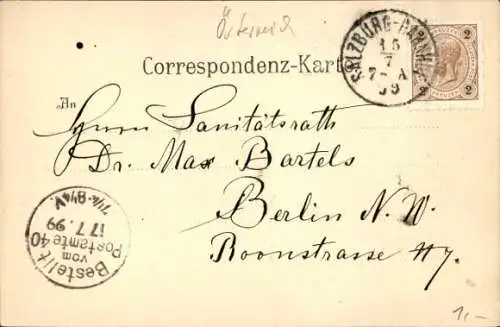 Österreich
SALZBURG-BAHNHOF
15
7
7-A
99
2 2
Correspondenz-Karte
An
Herrn Sanitätsrath
Dr. Max Bartels
Berlin N. W.
Roonstrasse 7
Bestellt
vom
Postamte 40
17.7.99
7¼-8¼V.
1,-